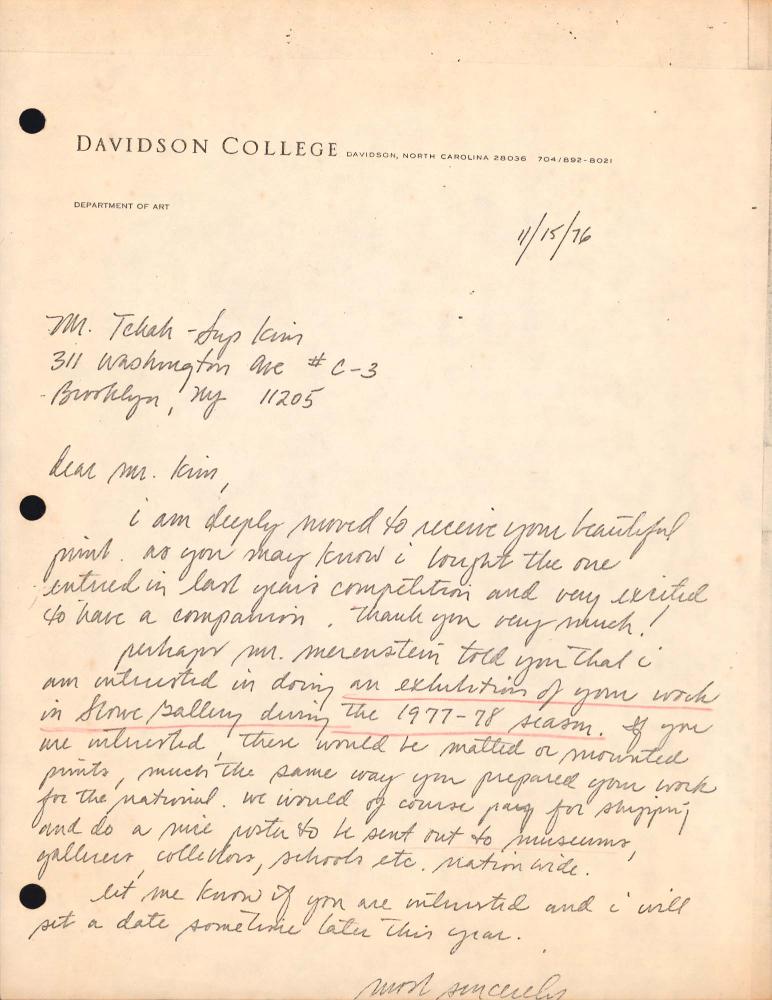 DAVIDSON COLLEGE DAVIDSON, NORTH CAROLINA 28036 704/892-8021
DEPARTMENT OF ART
11/15/76
Mr. Tchah-Sup Kim
311 Washington Ave # C-3
Brooklyn, Ny 11205
dear mr. Kim,
i am deeply moved to receive your beautiful
print. as you may know i bought the one
entered in last year's competition and very excited
to have a companion. Thank you very much!
perhaps mr. merenstein told you that i
am interested in doing an exhibition of your work
in Stowe Gallery during the 1977-78 season. If you
are interested, these would be matted or mounted
prints, much the same way you prepared your work
for the national. we would of course pay for shipping
and do a nice poster to be sent out to museums,
galleries, collectors, schools etc. nationwide.
let me know if you are interested and i will
set a date sometime later this year.
most sincerely